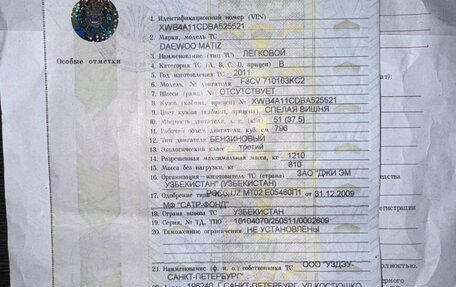 1. Идентификационный номер (VIN)
XWB4A11CDBA525521
2. Марка, модель ТС
DAEWOO MATIZ
Особые отметки
3. Наименование (тип ТС) ЛЕГКОВОЙ
4. Категория ТС (А, В, С, D, прицеп) B
5. Год изготовления ТС 2011
6. Модель, № двигателя F8CV 710163KC2
7. Шасси (рама) № ОТСУТСТВУЕТ
8. Кузов (кабина, прицеп) № XWB4A11CDBA525521
9. Цвет кузова (кабины, прицепа) СПЕЛАЯ ВИШНЯ
10. Мощность двигателя, л. с. (кВт) 51 (37.5)
11. Рабочий объем двигателя, куб. см 796
12. Тип двигателя БЕНЗИНОВЫЙ
13. Экологический класс третий
14. Разрешенная максимальная масса, кг 1210
15. Масса без нагрузки, кг 810
16. Организация – изготовитель ТС (страна) ЗАО "ДЖИ ЭМ
УЗБЕКИСТАН" (УЗБЕКИСТАН)
17. Одобрение РОСС UZ MT02 E05460П1 от 31.12.2009
МФ "САТР-ФОНД"
18. Страна вывоза ТС УЗБЕКИСТАН
19. Серия, № ТД, ТПО 10104070/250511/0002609
20. Таможенные ограничения НЕ УСТАНОВЛЕНЫ
21. Наименование (ф. и. о.) собственника ТС ООО "УЗДЭУ-
САНКТ-ПЕТЕРБУРГ"
196240, Г.САНКТ-ПЕТЕРБУРГ, УЛ.КОСТЮШКО